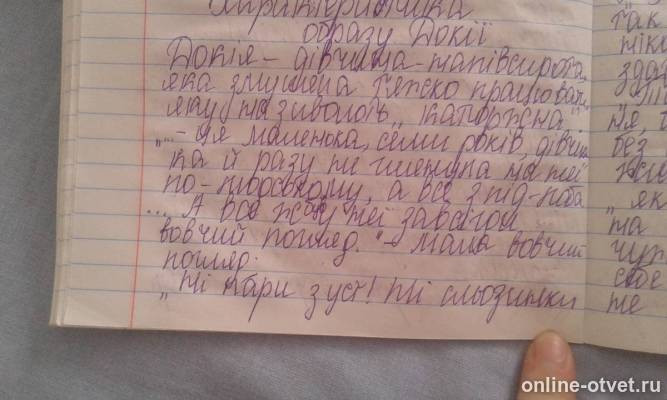 Характеристика
образу Докії
Докія – дівчина-напівсирота,
яка змушена тяжко працювати,
яку називають „каторжна".
„...– Ця маленька, семи років, дівчин
ка й разу не глянула на неї
по-людському, а все з під лоба
... А все жах у неї завсігди
вовчий погляд." – мала вовчий
погляд.
„Ні пари з уст! Ні сльозинки
так
здат
ня,
без
як
на
чуж
своє
же
online-otvet.ru